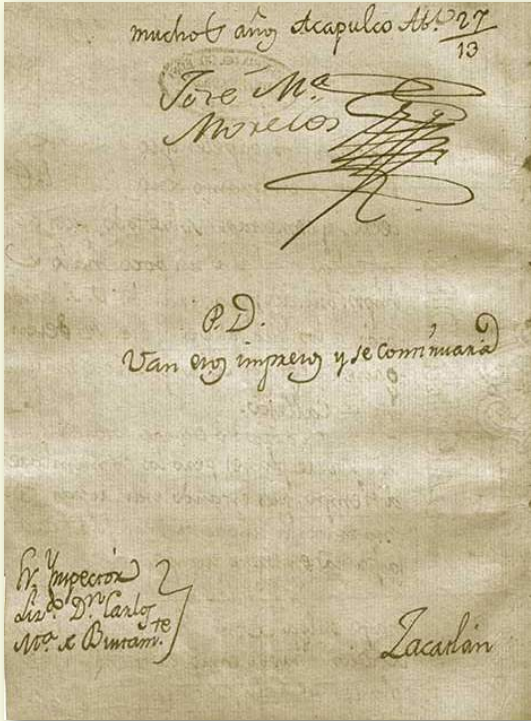 muchos años Acapulco Ab.l 27
13
José Ma.
Morelos
P.D.
Van esos impresos y se continuará
Sr. Ynspector
Liz.do Dn. Carlos
Ma. de Bustam.te
Zacatlán